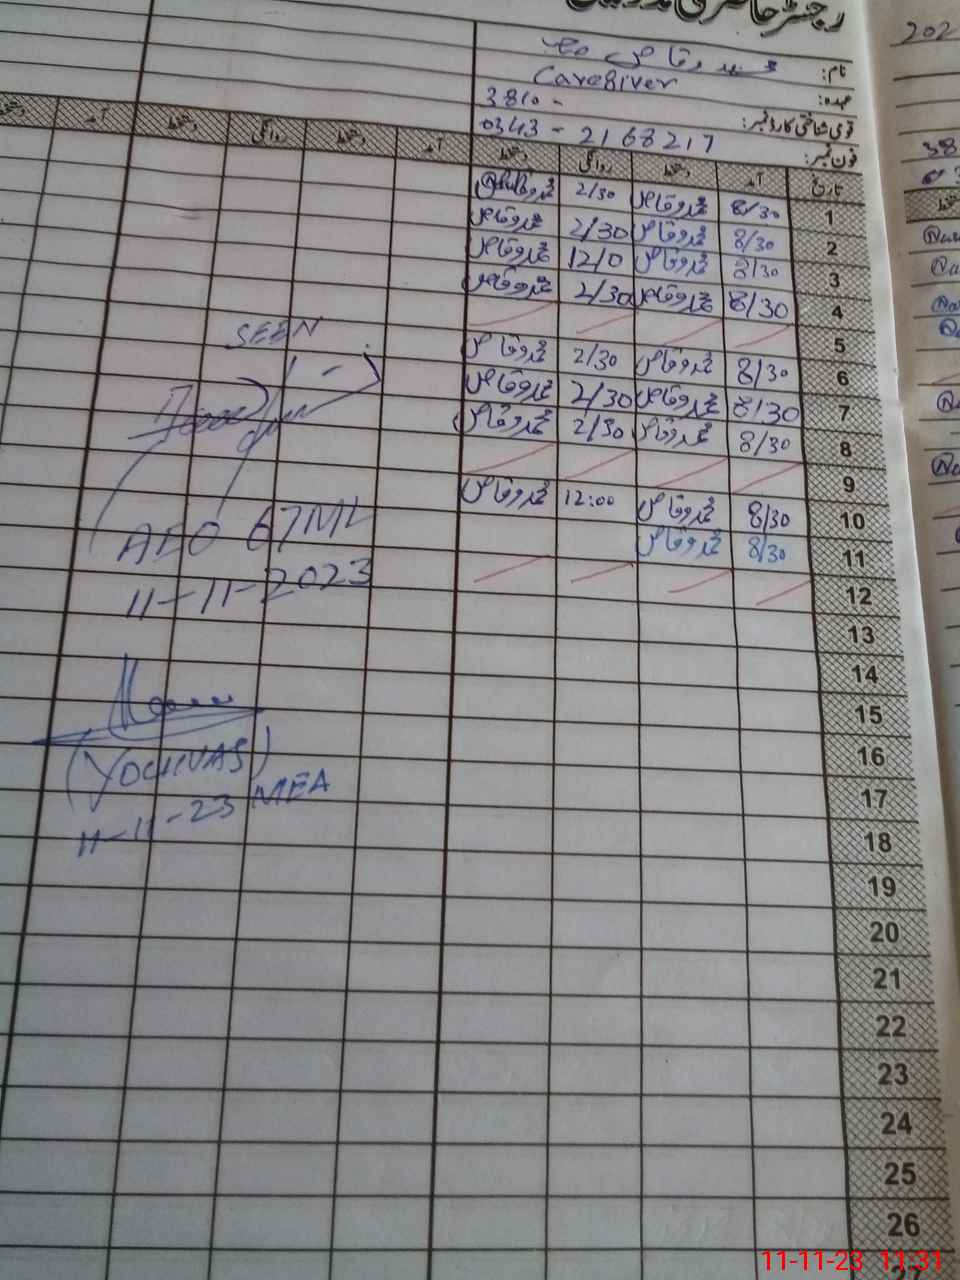 رجسٹر حاضری مدرسین
نام:
عہدہ: Caregiver
قومی شناختی کارڈ نمبر: 3810-
فون نمبر: 0343-2168217
تاریخ آمد دستخط روانگی دستخط آمد دستخط روانگی دستخط آمد
1 8/30 محمد وقاص 2/30
2 8/30 محمد وقاص 2/30 محمد وقاص
3 8/30 محمد وقاص 12/0 محمد وقاص
4 8/30 محمد وقاص 2/30 محمد وقاص
5
6 8/30 محمد وقاص 2/30 محمد وقاص
7 8/30 محمد وقاص 2/30 محمد وقاص
8 8/30 محمد وقاص 2/30 محمد وقاص
9
10 8/30 محمد وقاص 12:00 محمد وقاص
11 8/30 محمد وقاص
12
13
14
15
16
17
18
19
20
21
22
23
24
25
26
27
SEEN
AEO 67ML
11-11-2023
MEA
11-11-23
202
38
11-11-23 11:31